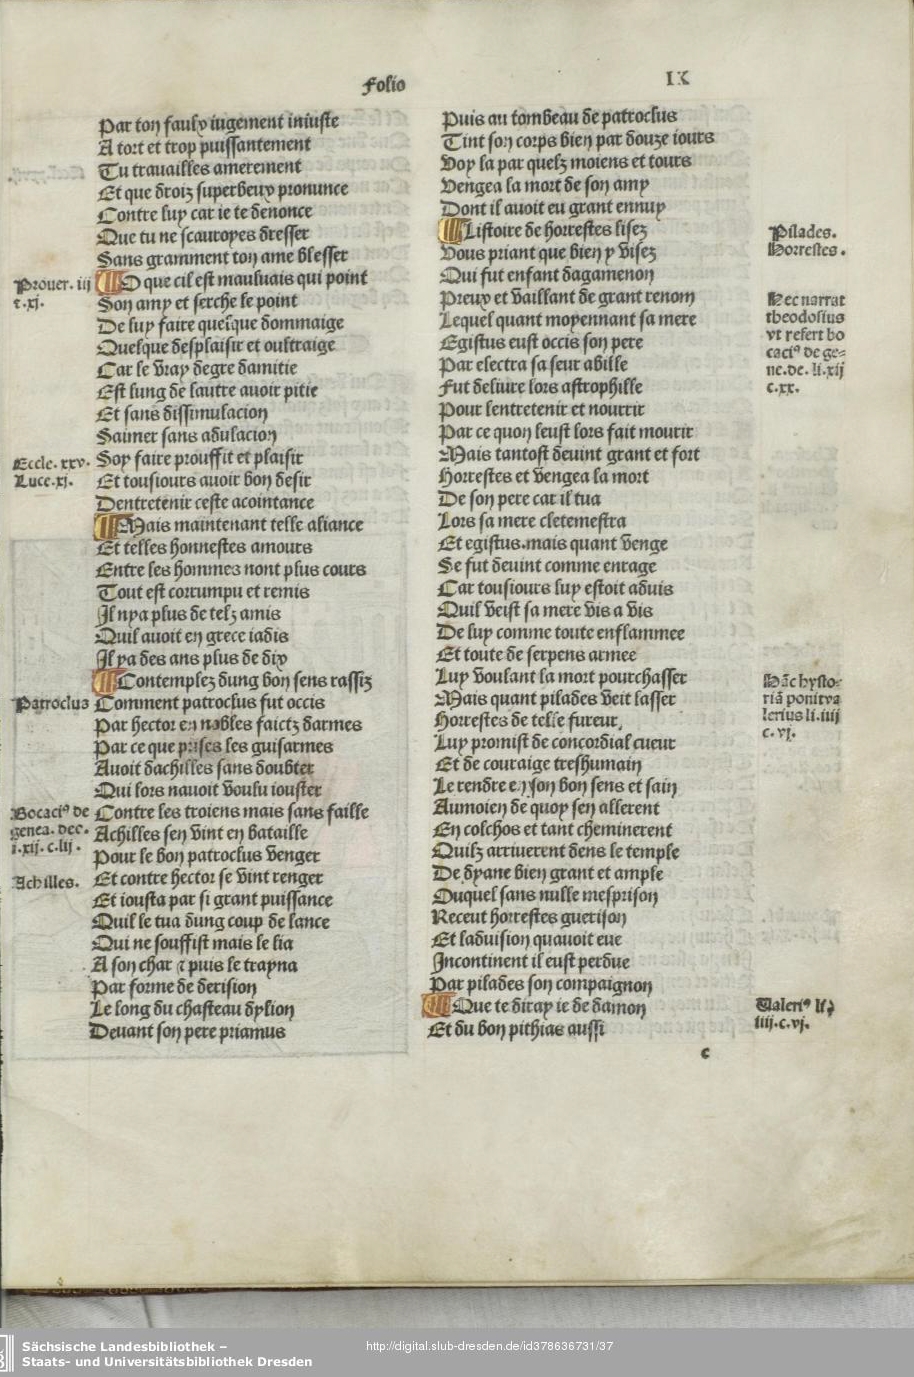 Folio IX
Par ton faulx iugement iniuste
A tort et trop puissantement
Tu trauailles amerement
Et que droiz superbeux pronunce
Contre luy car ie te denonce
Que tu ne scauroyes dresser
Sans gramment ton ame blesser
O que cil est mauluais qui point
Son amy et serche le point
De luy faire quelque dommaige
Quelque desplaisir et oultraige
Car le vray degre damitie
Est lung de lautre auoir pitie
Et sans dissimulacion
Saimer sans adulacion
Soy faire prouffit et plaisir
Et tousiours auoir bon desir
Dentretenir ceste acointance
Mais maintenant telle aliance
Et telles honnestes amours
Entre les hommes nont plus cours
Tout est corrumpu et remis
Il nya plus de telz amis
Quil auoit en grece iadis
Il ya des ans plus de dix
Contemplez dung bon sens rassiz
Comment patroclus fut occis
Par hector en nobles faictz darmes
Par ce que prises les guisarmes
Auoit dachilles sans doubter
Qui lors nauoit voulu iouster
Contre les troiens mais sans faille
Achilles sen vint en bataille
Pour le bon patroclus venger
Et contre hector se vint renger
Et iousta par si grant puissance
Quil le tua dung coup de lance
Qui ne souffist mais le lia
A son char ⁊ puis le trayna
Par forme de derision
Le long du chasteau dylion
Deuant son pere priamus
Prouer. iij
⁊.xj.
Eccle. xxv.
Luce.xj.
Patroclus
Bocaciꝰ de
genea. dec.
l.xij. c.lij.
Achilles.
Puis au tombeau de patroclus
Tint son corps bien par douze iours
Voy la par quelz moiens et tours
Vengea la mort de son amy
Dont il auoit eu grant ennuy
Listoire de horrestes lisez
Vous priant que bien y visez
Qui fut enfant dagamenon
Preux et vaillant de grant renom
Lequel quant moyennant sa mere
Egistus eust occis son pere
Par electra sa seur abille
Fut deliure lors astrophille
Pour lentretenir et nourrir
Par ce quon leust lors fait mourir
Mais tantost deuint grant et fort
Horrestes et vengea la mort
De son pere car il tua
Lors sa mere cletemestra
Et egistus.mais quant venge
Se fut deuint comme enrage
Car tousiours luy estoit aduis
Quil veist sa mere vis a vis
De luy comme toute enflammee
Et toute de serpens armee
Luy voulant la mort pourchasser
Mais quant pilades veit lasser
Horrestes de telle fureur,
Luy promist de concordial cueur
Et de couraige treshumain
Le rendre en son bon sens et sain
Aumoien de quoy sen allerent
En colchos et tant cheminerent
Quilz arriuerent dens le temple
De dyane bien grant et ample
Duquel sans nulle mesprison
Receut horrestes guerison
Et laduision quauoit eue
Incontinent il eust perdue
Par pilades son compaignon
Que te diray ie de damon
Et du bon pithias aussi
c
Pilades.
Horrestes.
Hec narrat
theodosius
vt refert bo
caciꝰ de ge-
ne.de. li.xij
c.xx.
Hāc hysto-
riā ponit va
lerius li.iiij
c.vj.
Valeriꝰ li
iiij.c.vj.
Sächsische Landesbibliothek –
Staats- und Universitätsbibliothek Dresden
http://digital.slub-dresden.de/id378636731/37